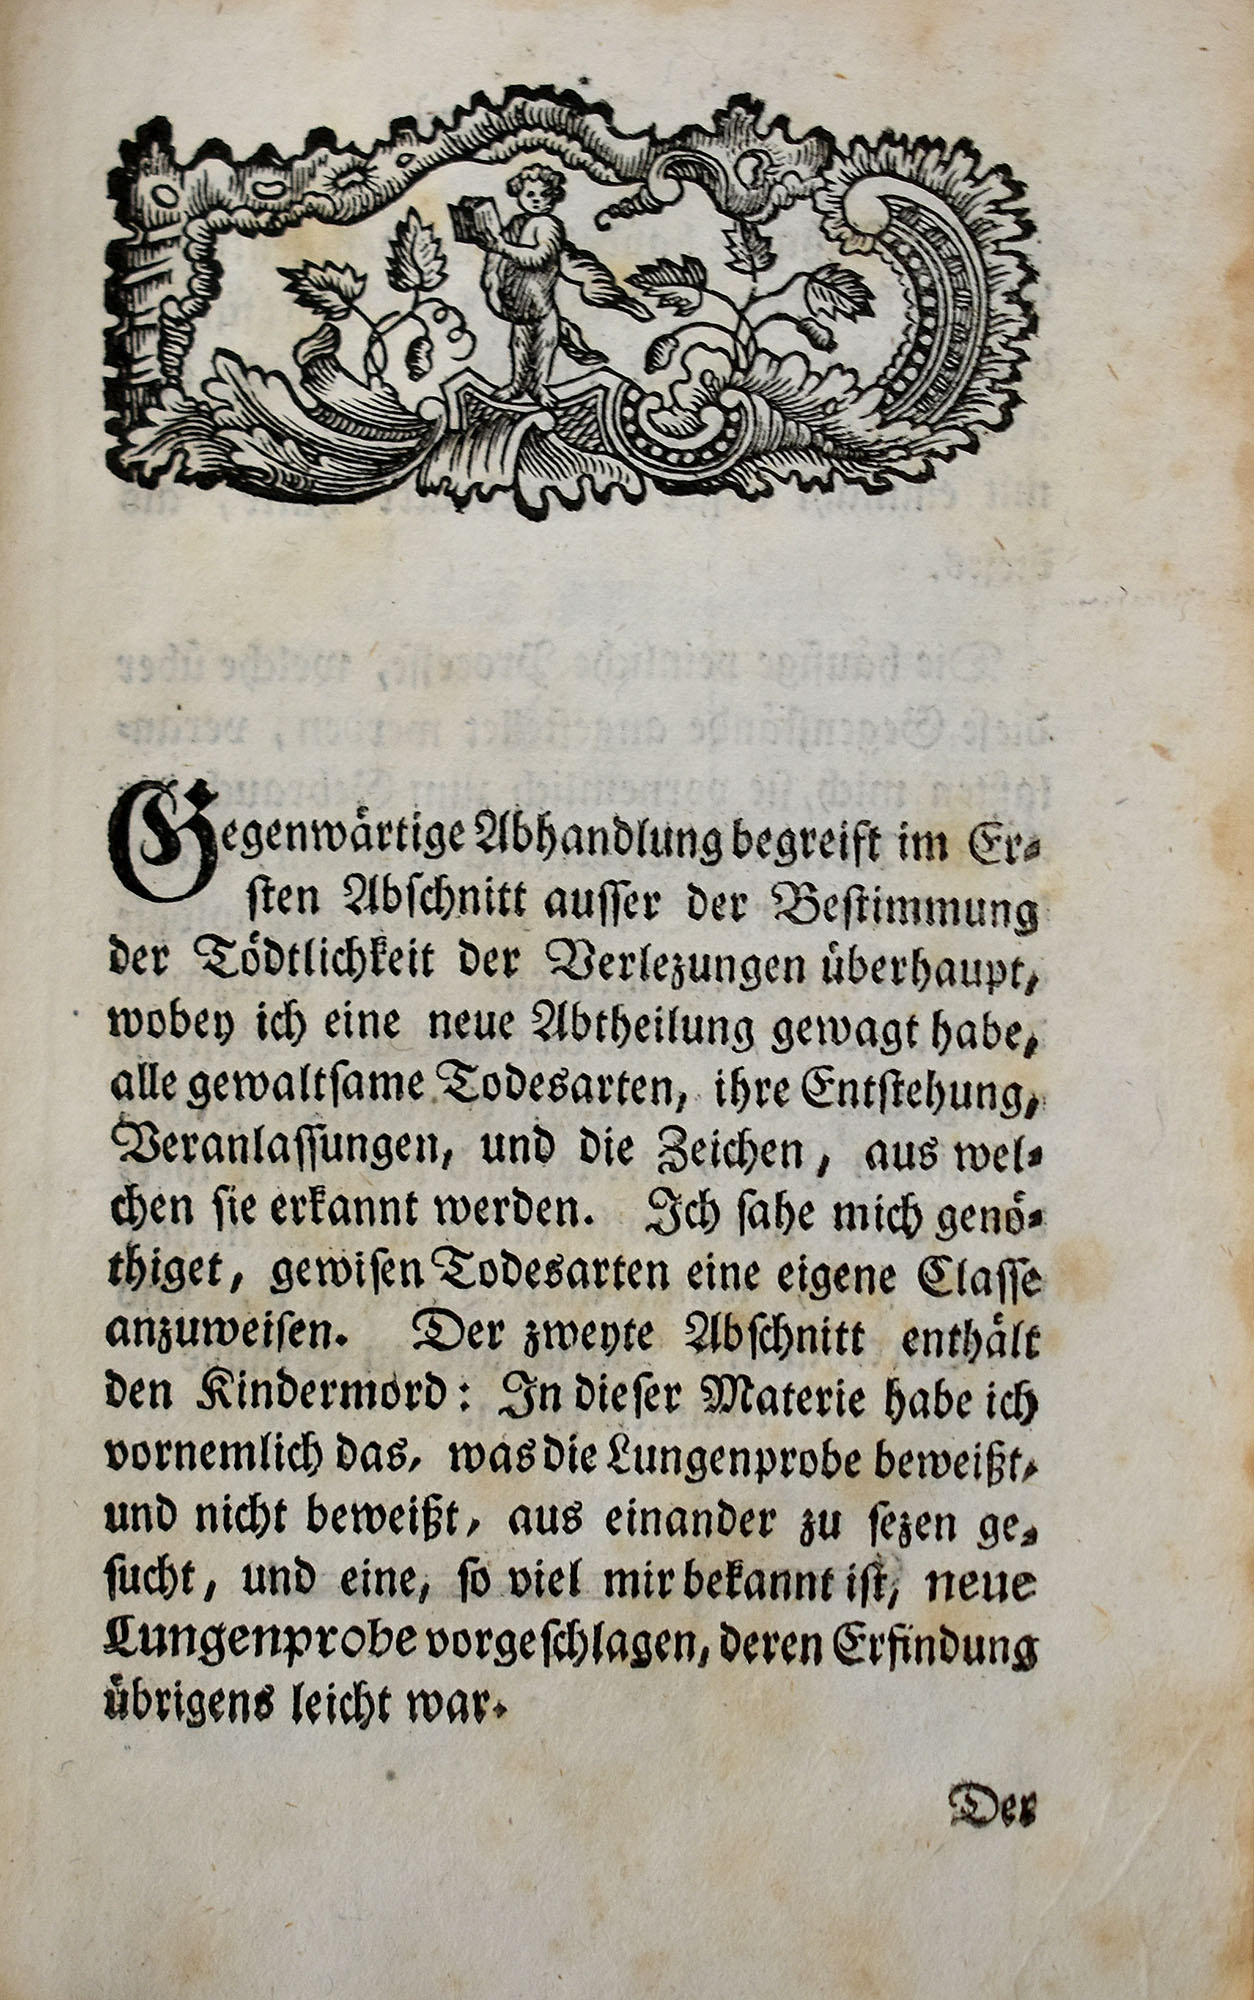 Gegenwärtige Abhandlung begreift im Er-
sten Abschnitt ausser der Bestimmung
der Tödtlichkeit der Verlezungen überhaupt,
wobey ich eine neue Abtheilung gewagt habe,
alle gewaltsame Todesarten, ihre Entstehung,
Veranlassungen, und die Zeichen, aus wel-
chen sie erkannt werden. Ich sahe mich genö-
thiget, gewisen Todesarten eine eigene Classe
anzuweisen. Der zweyte Abschnitt enthält
den Kindermord: In dieser Materie habe ich
vornemlich das, was die Lungenprobe beweißt,
und nicht beweißt, aus einander zu sezen ge-
sucht, und eine, so viel mir bekannt ist, neue
Lungenprobe vorgeschlagen, deren Erfindung
übrigens leicht war.
Der